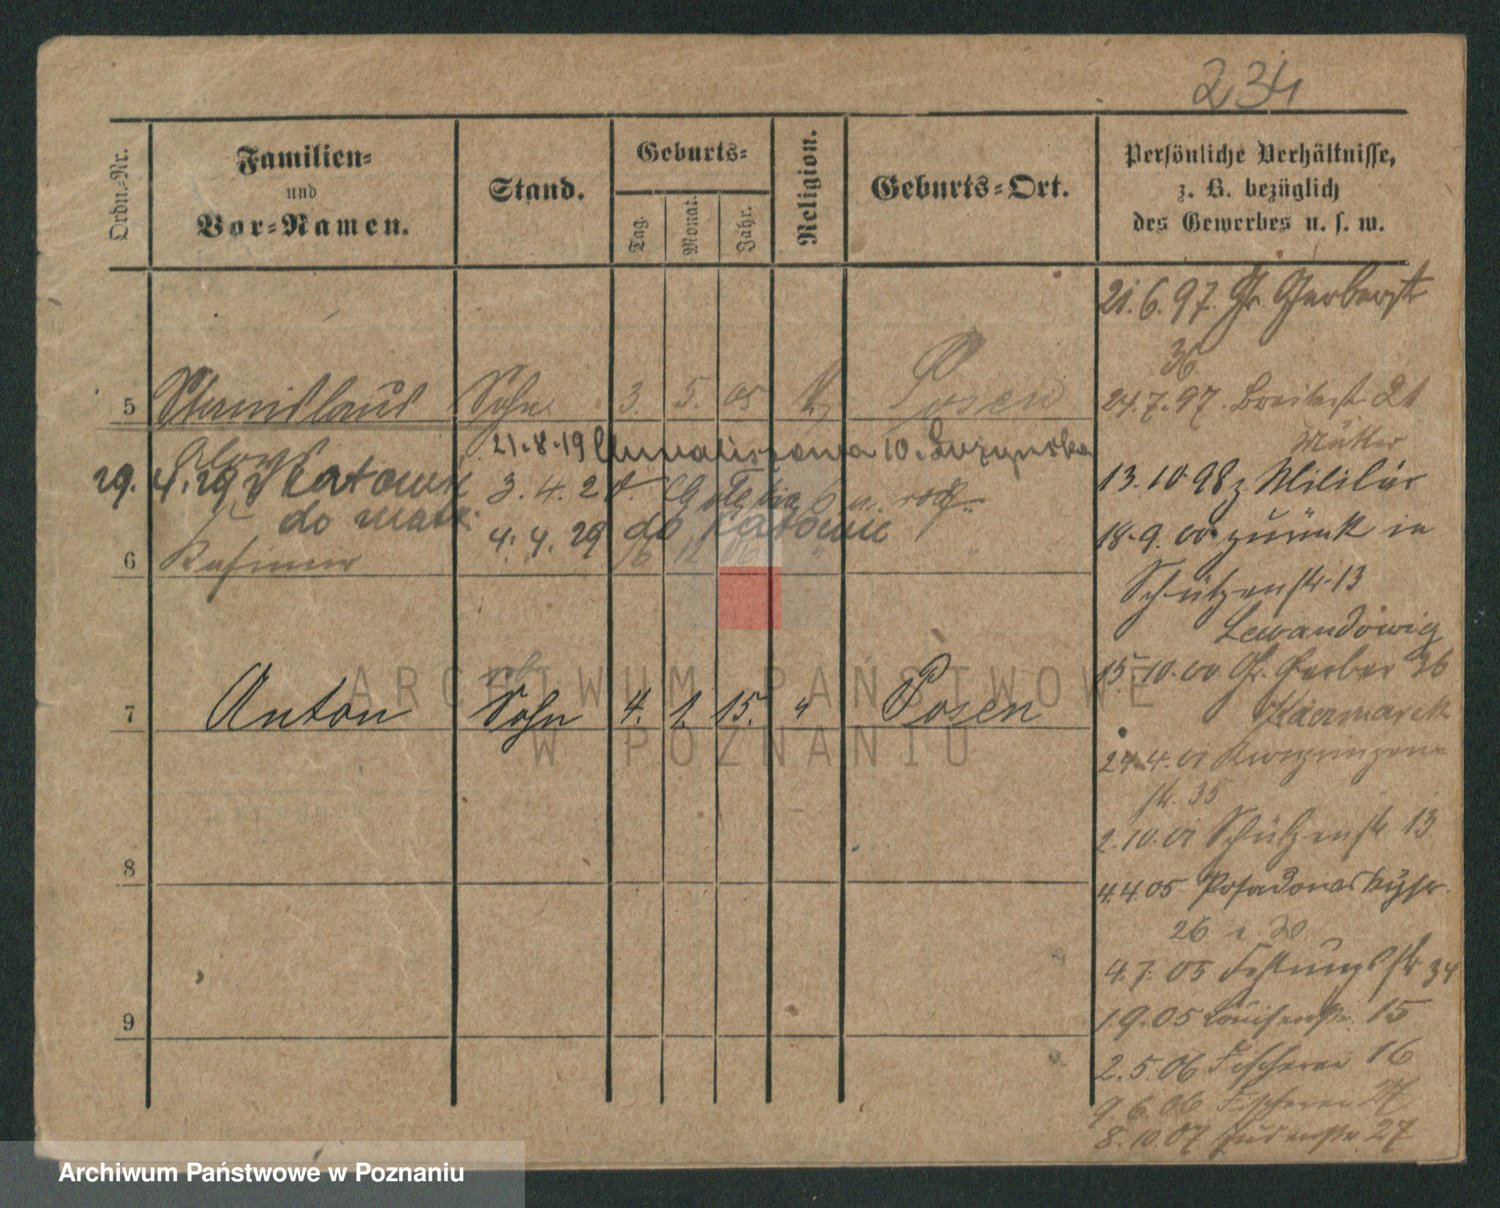 234
Ordn.-Nr.
Familien-
und
Vor-Namen.
Stand.
Geburts-
Tag.
Monat.
Jahr.
Religion.
Geburts-Ort.
Persönliche Verhältnisse,
z. B. bezüglich
des Gewerbes u. s. w.
21.6.97. Gr. Gerberstr
36
5 Stanislaus Sohn 3. 5. 05 Posen
24.7.97. Breitestr 21
Mutter
21.8.19 10.
13.10.98 z Militär
29. 4. 29 Katowic 3. 4. 28.
do matk. 4. 4. 29 do Katowic
18.9.00 zurück in
6 Kasimir 16 12 06 "
Schützenstr. 13
Lewandowicz
15.10.00 Gr. Gerber 36
7 Anton Sohn 4. 1. 15. " Posen
Kaczmarek
24.4.01
str. 35
2.10.01 Schützenstr 13
8
4.4.05 Posadowskystr.
26
4.7.05 Festungsstr 34
9
1.9.05 Louisenstr. 15
2.5.06 Fischerei 16
9.6.06 Fischerei 27
8.10.07 27
ARCHIWUM PAŃSTWOWE
W POZNANIU
Archiwum Państwowe w Poznaniu